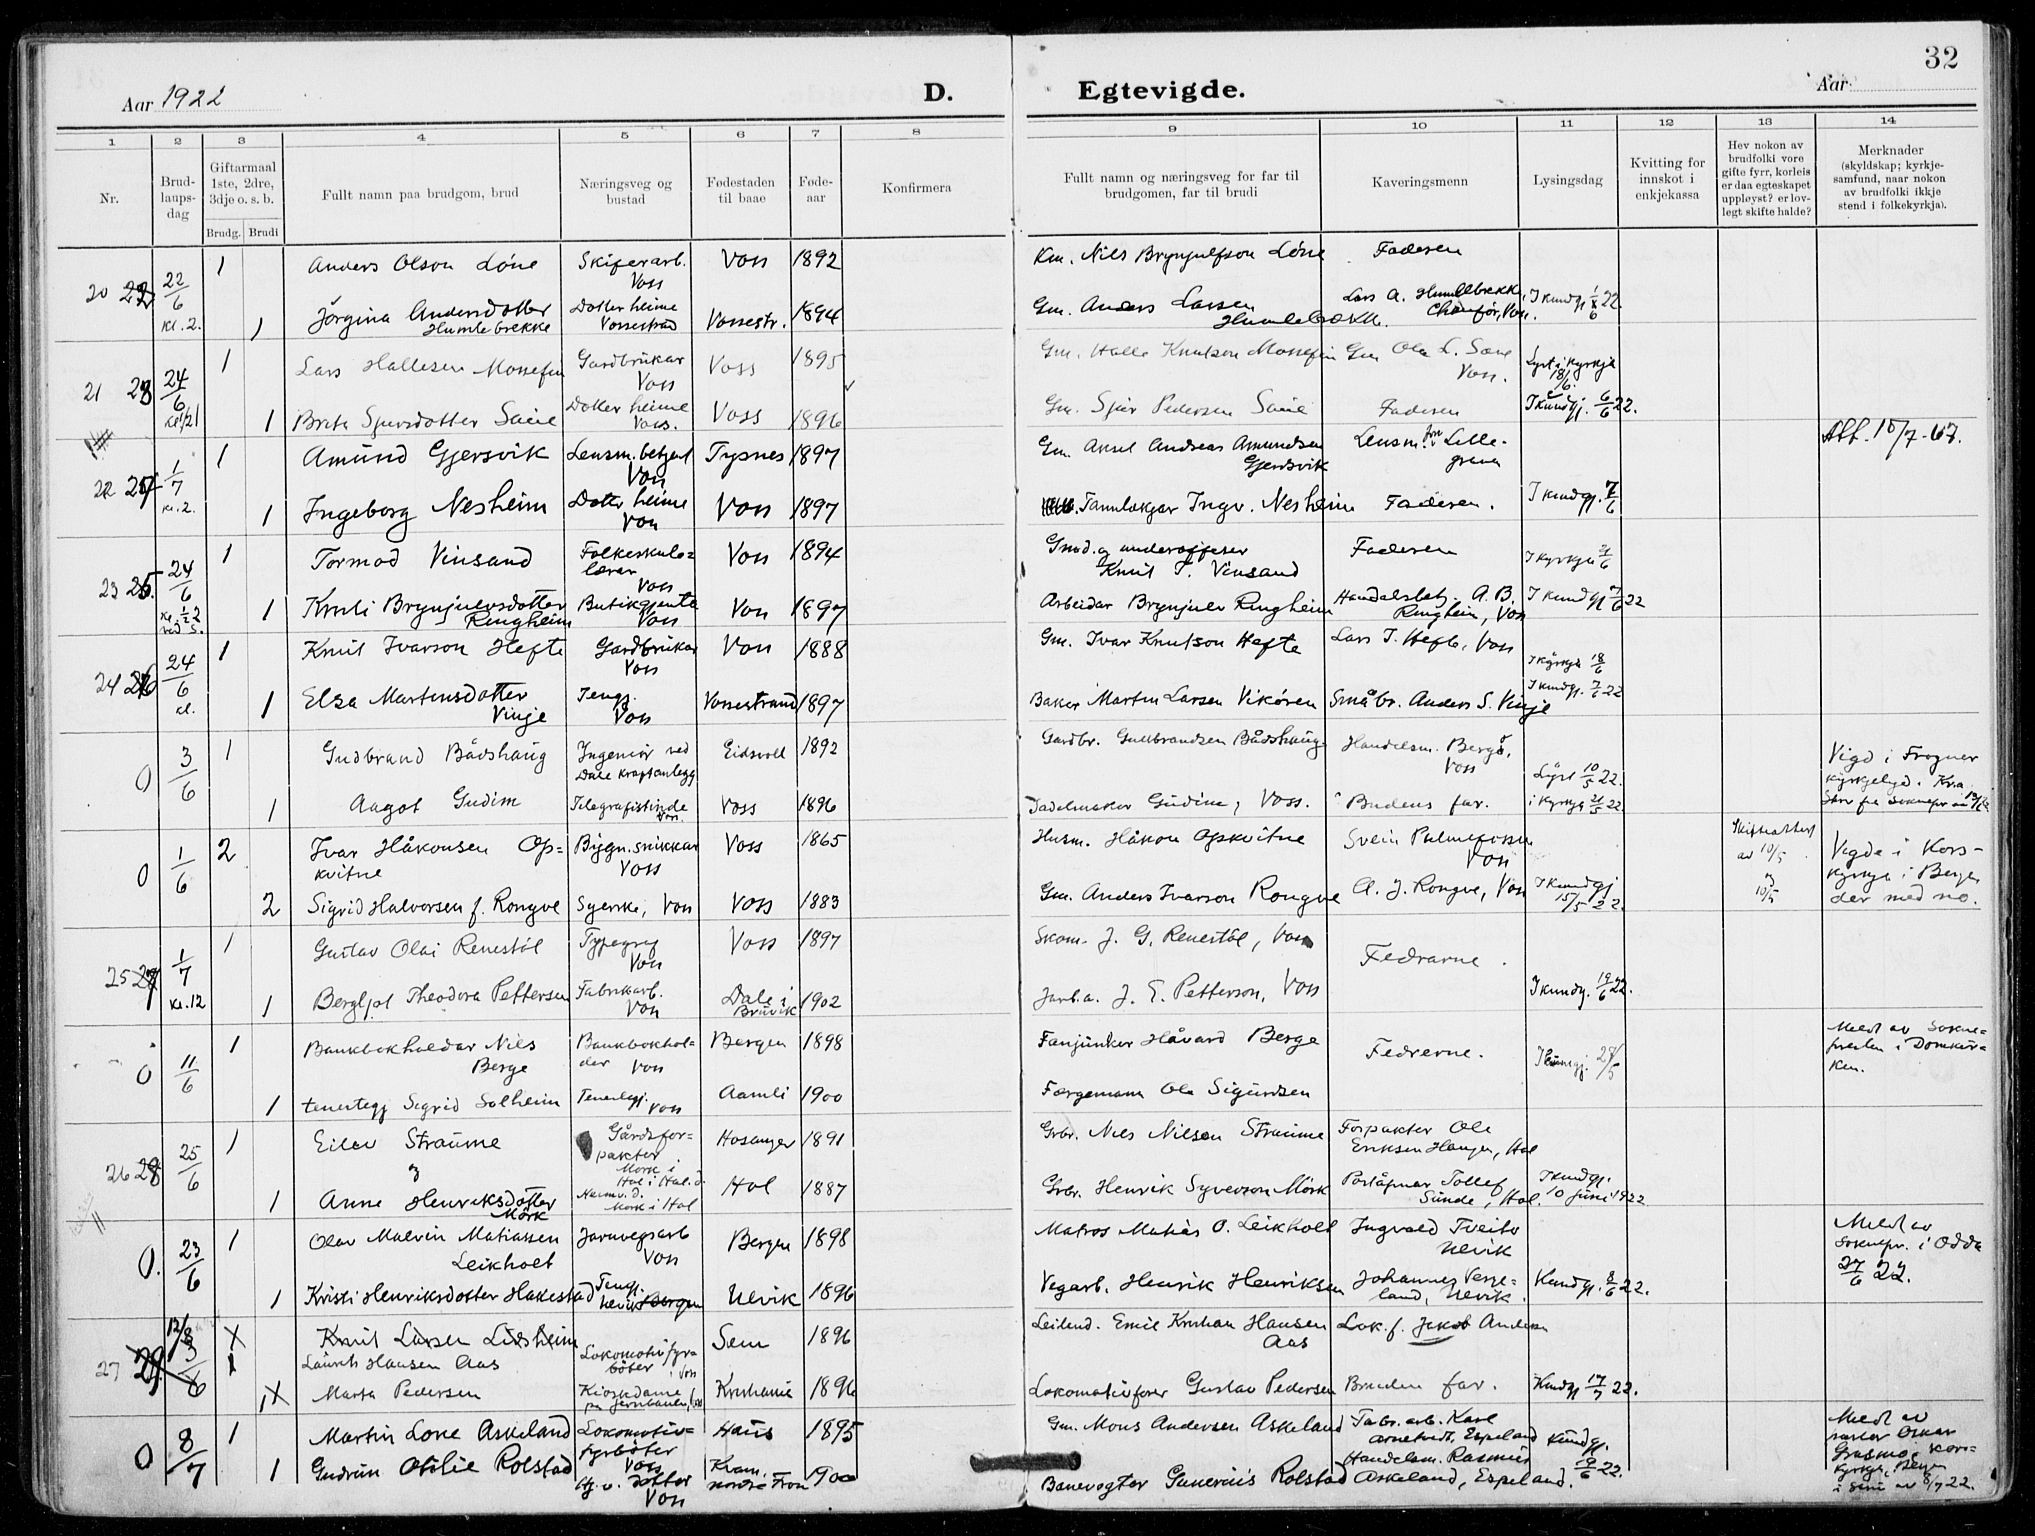 32
Aar 1922
D. Egtevigde.
Aar
1 2 3 4 5 6 7 8 9 10 11 12 13 14
Nr.
Brud-
laups-
dag
Giftarmaal
1ste, 2dre,
3dje o. s. b.
Brudg. Brudi
Fullt namn paa brudgom, brud
Næringsveg og
bustad
Fødestaden
til baae
Føde-
aar
Konfirmera
Fullt namn og næringsveg for far til
brudgomen, far til brudi
Kaveringsmenn
Lysingsdag
Kvitting for
innskot i
enkjekassa
Hev nokon av
brudfolki vore
gifte fyrr, korleis
er daa egteskapet
uppløyst? er lov-
legt skifte halde?
Merknader
(skyldskap; kyrkje-
samfund, naar nokon
av brudfolki ikkje
stend i folkekyrkja).
20 22/6 kl. 2. 1 Anders Olson Löne Skiferarb. Voss Voss 1892 Km. Nils Brynjulfson Löne Faderen
1 Jörgina Andersdotter Humlebrekke Dotter heime Vossestrand Vossestr. 1894 Gm. Anders Larsen Humlebrekke. Lars A. Humlebrekke, Chauför, Voss. I kundgj. 22.
21 24/6 1 Lars Hallesen Mossefin Gardbrukar Voss Voss 1895 Gm. Halle Knutson Mossefin Gm Ola L. Voss. Lyst i kyrkja 18/6.
1 Brita Sjursdotter Saue Dotter heime Voss. Voss 1896 Gm. Sjur Pedersen Saue Faderen I kundgj. 6/6 22.
22 1/7 kl. 2. 1 Amund Gjersvik Lensm. betjent Voss Tysnes 1897 Gm. Aksel Andreas Amundsen Gjersvik Lensm. Lille-
grаven Att. 10/7-67.
1 Ingeborg Nesheim Dotter heime Voss Voss 1897 Tannlækjar Ingv. Nesheim Faderen. I kundgj. 7/6
23 24/6 1 Tormod Vinsand Folkeskule-
lærar Voss Voss 1894 Gmd. og underofficer Knut T. Vinsand Faderen I kyrkja
1 Brynjulvsdotter Ringheim Butikgjenta Voss Voss 1897 Arbeidar Brynjulv Ringheim Handelsbetj. A. B. Ringheim, Voss I kundgj 7/6 22
24 24/6 kl. 1 Knut Ivarson Hefte Gardbrukar Voss Voss 1888 Gm. Ivar Knutson Hefte Lars I. Hefte, Voss I kyrkja 18/6
1 Elsa Martinsdotter Vinje Teng. Voss Vossestrand 1897 Baker Martin Larsen Vikören Småbr. Anders S. Vinje I kundgj. 7/6 22
0 3/6 1 Gudbrand Bådshaug Ingeniör ved Dale kraftanlegg Eidsvoll 1892 Gardbr. Gullbrandsen Bådshaug Handelsm. Berge, Voss Lyst 10/5 22. Vigd i Frogner
kyrkjelyd. Kr.a
1 Aagot Gudim Telegrafistinde Voss. Voss 1896 Sadelmaker Gudim, Voss. Brudens far. i kyrkja 21/5 22
0 1/6 2 Ivar Håkonsen Op-
kvitne Bygn. snikkar Voss Voss 1865 Husm. Håkon Opkvitne Svein Palmafossen Voss Skifteattest
av 10/5
og
10/5 Vigde i Kors-
kyrkja i Bergen
der med no.
2 Sigrid Halvorsen f. Rongve Syerske, Voss Voss 1883 Gm. Anders Ivarson Rongve A. J. Rongve, Voss I kundgj 15/5 22.
25 1/7 kl. 12 1 Gustav Olai Renestöl Typograf Voss Voss 1897 Skom. J. G. Renestöl, Voss Fedrarne.
1 Bergljot Theodora Pettersen Fabrikarb. Voss Dale i Bruvik 1902 Jarb.a. J. E. Petterson, Voss I kundgj. 19/6 22.
0 11/6 1 Bankbokholdar Nils Berge Bankbokhol-
der Voss Bergen 1898 Fanjunker Håvard Berge Fedrerne. Meldt av Sokne-
presten i Domkir-
ken.
1 Sigrid Solheim Voss Aamli 1900 Færgemann Ola Sigurdsen
26 25/6 1 Eilev Straume Gårdsfor-
pakter Mörk i Hol i Hal.d. Hosanger 1891 Grbr. Nils Nilsen Straume Forpakter Ole Eriksen Haugen, Hol
og
1 Anne Henriksdotter Mörk Mörk i Hol Hol 1887 Grbr. Henrik Syverson Mörk Tollef Sunde, Hol. I kundgj. 10 juni 1922
0. 23/6 1 Olav Malvin Matiassen Leikholt Jarnvegsarb Voss Bergen 1898 Matros Matias O. Leikholt Ingvald Tveito Ulvik Meldt av
soknepr. i Odda
27/6 22.
1 Kristi Henriksdotter Hakestad Teng. Ulvik Bergen Ulvik 1896 Vegarb. Henrik Henriksen Johannes Verge-
land, Ulvik. Kundgj. 8/6 22.
27 12/8 Knut Larsen Lidsheim
Laurits Hansen Aas Lokomotivfyr-
böter i Voss Sem 1896 Leilend. Emil Kristian Hansen Aas Lok. f. Jakob Andersen
1 Marta Pedersen Kioskdame på jernbanen Kristiania 1896 Lokomotivförer Gustav Pedersen Bruden far. Kundgj 17/7 22.
0 8/7 1 Martin Lone Askeland Lokomotiv-
fyrböter Voss Haus 1895 Gm. Mons Andersen Askeland Fabr. arb. Karl Arnetvedt, Espeland Kundgj. 19/6 22. Meldt av
pastor Oskar
Kors-
kyrkja, Bergen
i skriv av 8/7 22.
1 Gudrun Otilie Rolstad Hj. v. dotter Voss Kvam nordre Fron 1900 Banevogter Rolstad Handelsm. Rasmus Askeland, Espeland.